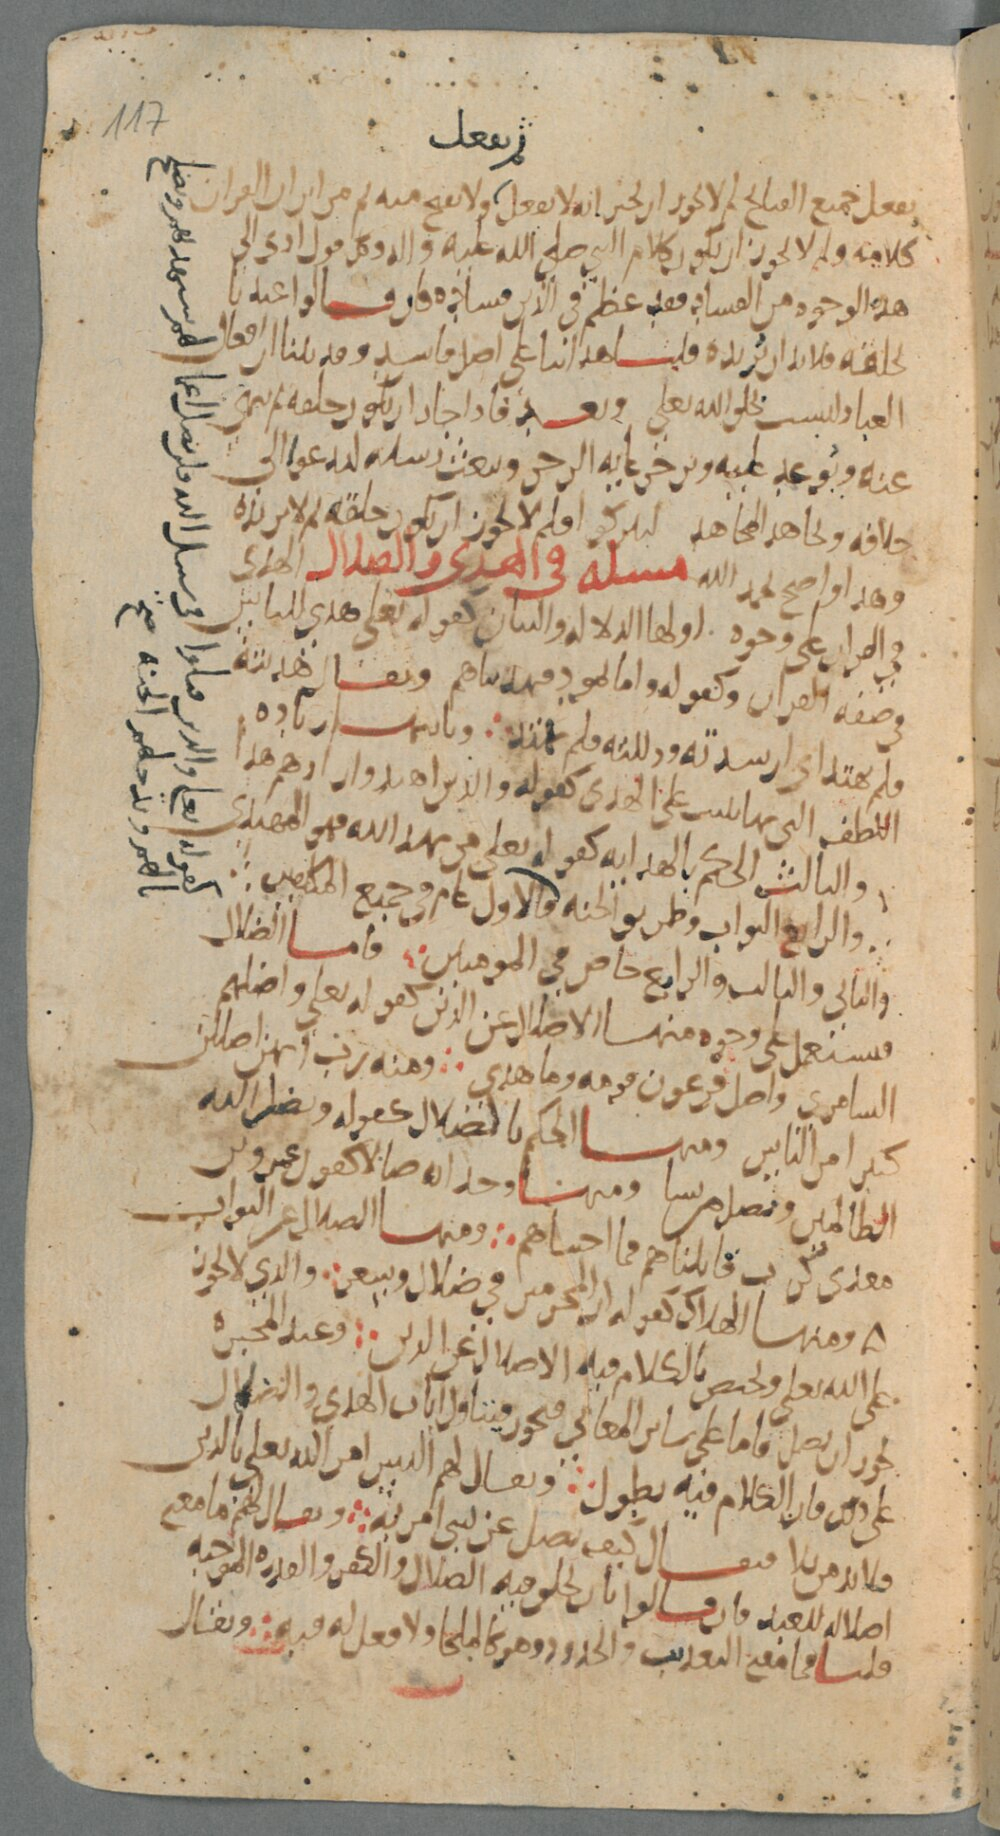 117
ثم يفعل
يفعل جميع القبايح لم لا يجوز ان يخبر انه لا يفعل ولا يقبح منه ثم من اين ان القران
كلامه ولم لا يجوز ان يكون كلام النبي صلى الله عليه واله وكل قول ادى الى
هذه الوجوه من الفساد فقد عظم في الدين فساده فان قالوا عنه يا
لخلقه فلا بد ان يريده قلنا هذا بنا على اصل فاسد وقد بينا ان افعال
العباد ليست بخلق الله تعالى وبعد فاذا جاز ان يكون خلقه ثم ينهى
عنه ويوعد عليه ويزجر غاية الزجر ويبعث رسله ليدعوا الى
خلافه ويجاهد المجاهد ليتركوا فلم لا يجوز ان يكون خلقه ثم لا يريده
وهذا واضح بحمد الله مسله في الهدى والضلال الهدى
في القران على وجوه اولها الدلاله والبيان كقوله تعالى هدى للناس
في صفه القران وكقوله واما ثمود فهديناهم ويقال هديته
فلم يهتد اي ارشدته ودللته فلم يهتد وثانيها زياده
اللطف التي بها يثبت على الهدى كقوله والذين اهتدوا زادهم هدى
والثالث الحكم بالهدايه كقوله تعالى من يهد الله فهو المهتدي
والرابع الثواب وطريق الجنه فالاول عام في جميع المكلفين
والثاني والثالث والرابع خاص في المومنين فاما الضلال
فيستعمل على وجوه منها الاضلال عن الدين كقوله تعالى واضلهم
السامري واضل فرعون قومه وما هدى ومنه رب انهن اضللن
كثيرا من الناس ومنها الحكم بالضلال كقوله ويضل الله
الظالمين ويضل من يشا ومنها وجدانه ضالا كقول عمرو بن
معدي كرب قاتلناهم فما اجبناهم ومنها الضلال عن الثواب
ومنها الهلاك كقوله ان المجرمين في ضلال وسعر والذي لا يجوز
على الله تعالى ويختص بالكلام فيه الاضلال عن الدين وعند المجبره
يجوز ان يضل فاما على ساير المعاني فيجوز ويتناول ايات الهدى والضلال
على ذلك فان الكلام فيه يطول ويقال لهم اليس امر الله تعالى بالدين
فلا بد من بلا فيقال كيف يضل عن شي امر به ويقال لهم ما معنى
اضلاله للعبد فان قالوا بان يخلق فيه الضلال والكفر والقدره الموجبه
قلنا فما معنى التعذيب والحدود وهو كالملجا ولا فعل له فيه ويقال
كقوله تعالى والذين قتلوا في سبيل الله فلن يضل اعمالهم سيهديهم ويصلح
بالهم ويدخلهم الجنه صح